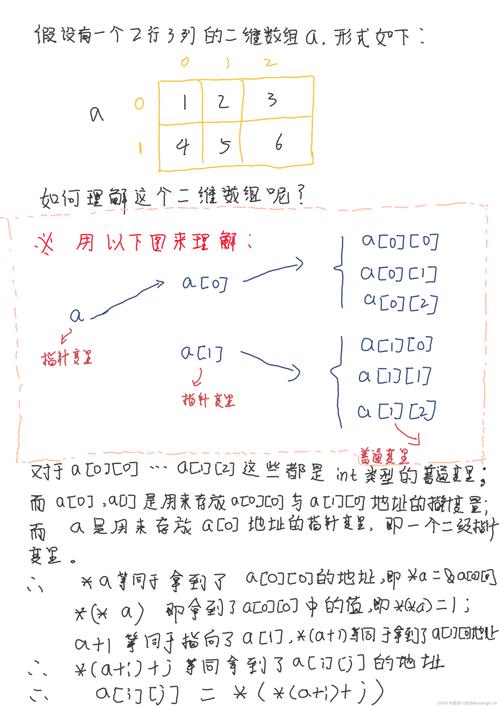 假设有一个2行3列的二维数组a,形式如下:
0 1 2
a 0 1 2 3
1 4 5 6
如何理解这个二维数组呢?
※ 用以下图来理解:
a
指针变量
a[0]
a[1]
指针变量
a[0][0]
a[0][1]
a[0][2]
a[1][0]
a[1][1]
a[1][2]
普通变量
对于a[0][0]…a[1][2]这些都是int类型的普通变量;
而a[0],a[1]是用来存放a[0][0]与a[1][0]地址的指针变量;
而 a是用来存放a[0]地址的指针变量,即一个二级指针
变量。
∴ *a等同于拿到了 a[0][0]的地址,即*a=&a[0][0]
*(*a) 即拿到了a[0][0]中的值,即*(*a)=1;
a+1 等同于指向了a[1],*(a+1)等同于拿到了a[1][0]地址
∴ *(a+i)+j 等同拿到了a[i][j]的地址
∴ a[i][j] = *(*(a+i)+j)